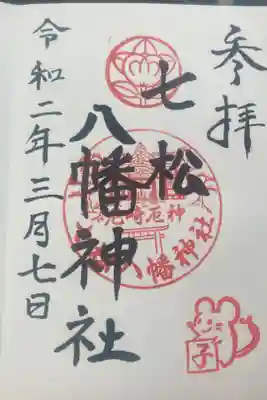 参拝
七松
八幡神社
令和二年三月七日
尼崎厄神
七松八幡神社
子